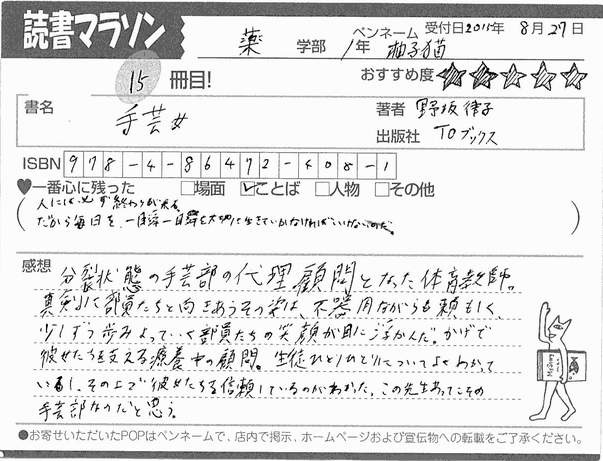 読書マラソン
薬 学部 1年 ペンネーム 柚子猫 受付日2015年 8月27日
15 冊目! おすすめ度 ★★☆☆☆
書名 手芸女
著者 野坂律子
出版社 TOブックス
ISBN 978-4-86472-408-1
♥一番心に残った □場面 ☑ことば □人物 □その他
(人には必ず終わりが来る
だから毎日を、一日一日を大切に生きていかなければいけないのだ。)
感想 分裂状態の手芸部の代理顧問となった体育教師。
真剣に部員たちと向きあうその姿は、不器用ながらも頼もしく、
少しずつ歩みよっていく部員たちの笑顔が目に浮かんだ。かげで
彼女たちを支える療養中の顧問。生徒ひとりひとりについてよくわかって
いるし、その上で彼女たちを信頼しているのがわかった。この先生あってこその
手芸部なのだと思う。
●お寄せいただいたPOPはペンネームで、店内で掲示、ホームページおよび宣伝物への転載をご了承ください。